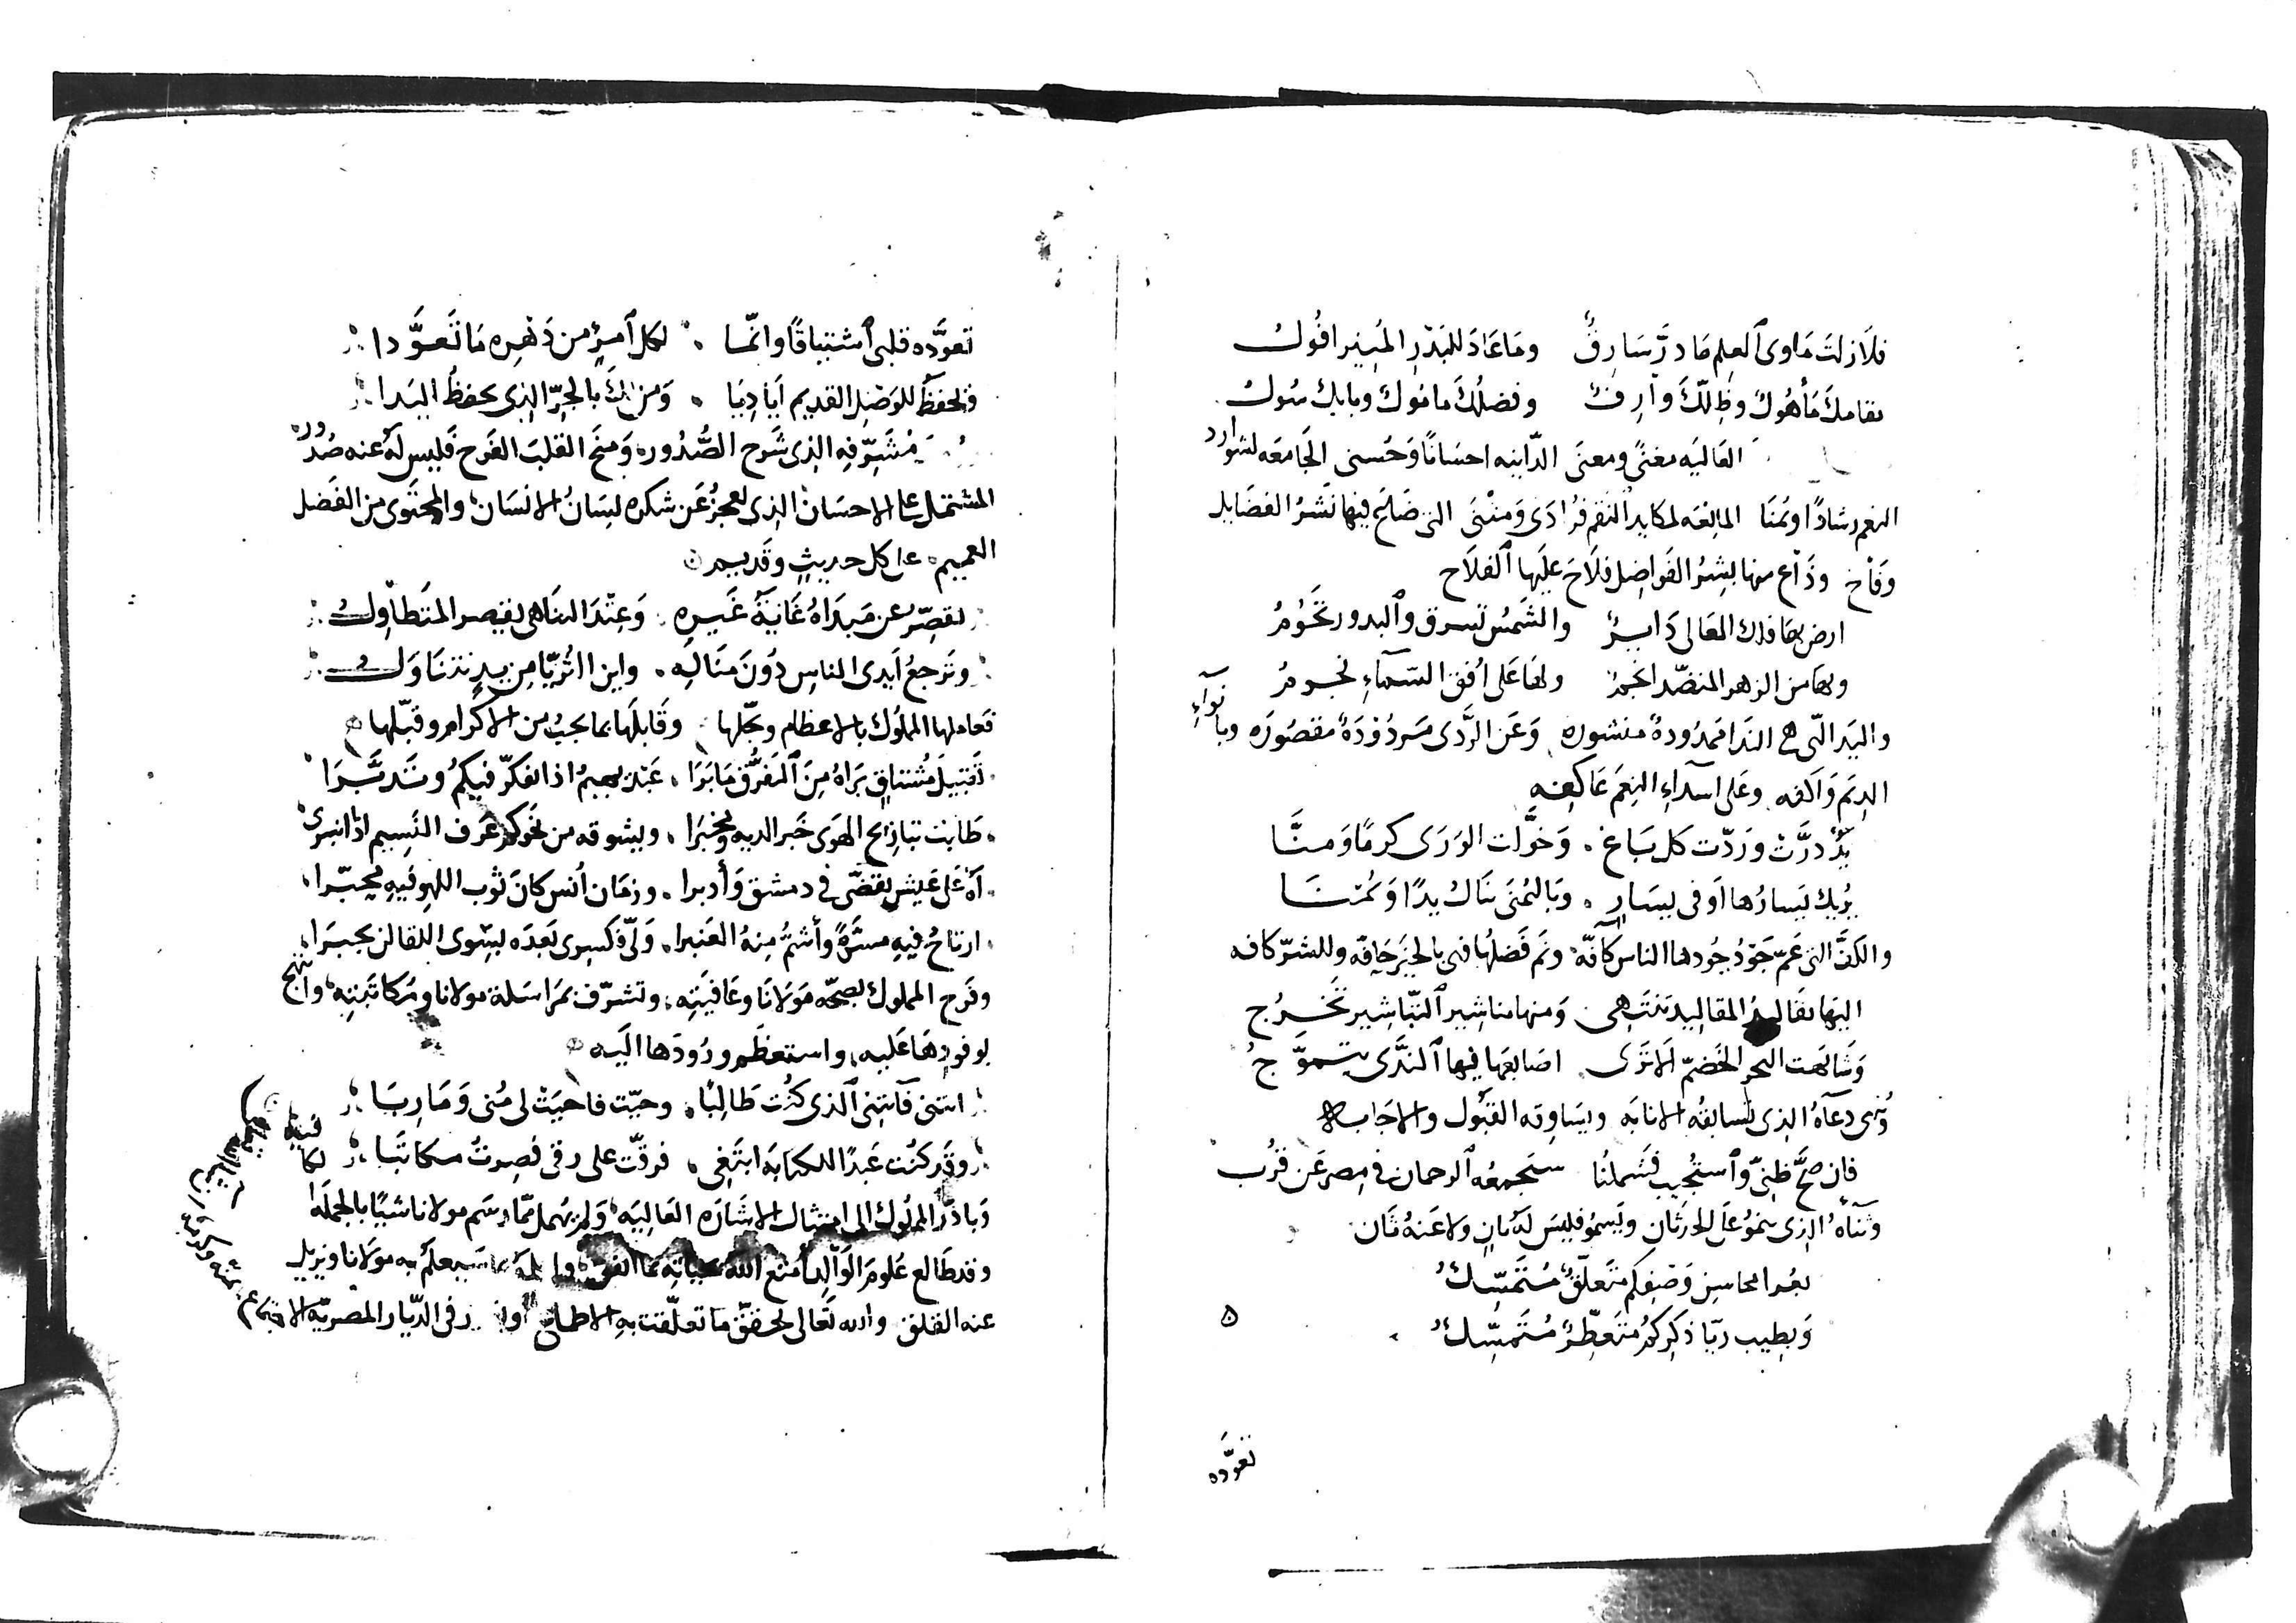 فلَا زلتَ مَاوى ٱلعِلم مَا درَّ شَارِقٌ ومَا عَادَ للبَدْرِ المُنِير افُولُ
مقامكَ مَأْهُوكٌ وظِلّكَ وارفٌ وفضلُكَ مامُوك وبابك سُوك
العَاليَه مغنًى ومعنَى الدّانيه احسَانًا وَحُسنى الجَامعَه لشوارد
النعم رشادًا ويُمنَا المانِعَه لمكايد النقم فُرَادَى وَمثنَى التي ضَاعَ فيها نَشرُ الفضَايل
وَفَاح وذَاع منها بِشرُ الفَواضِل فلَاحَ علَيها ٱلفلَاح
ارض بهَا فلك المعَالى دَايرٌ والشَمسُ تشرق وٱلبدور تَحُومُ
وبهَا من الزهر المنضّد انجمٌ ولهَا عَلى اُفق السّمَآءِ نجومُ
واليَد الّتى هي الندَا مَمدُودةٌ منشوره وَعَن الرَّدَى مَردُوْدَةٌ مقصُورَه وبانوآءِ
الدِيَم وَاكفه وعَلى اسدَاءِ النِعَم عَاكِفه
يَدٌ درَّتْ ورَدّت كل بَاغ وَخوَّلت الوَرَى كرمًا وَمنَّا
يُريك يَسَارُها اَوفى يسَارٍ وبَاليُمنَى تنَاك يدًا وَيُمنَا
والكفَّ التى عَمّ جَوْدُ جُودها الناس كآفّة وتَم فَضلُها فهى بالخَير حَافّه وللشرّ كافه
اليَها مقَاليدُ المقالِيد تنتَهِى وَمنها مناشِير ٱلتّبَاشِير تَخرُج
وَشَابَهت البحر الخضمّ اَلا تَرَى اصَابِعَهَا فيها ٱلنَدَّى يتموَّجُ
دعآهُ الذى تُسابقُه الانابَه ويسَاوِقه القبُول والاجَابه
فان صَحَّ ظنِىّ وٱستُجيبَ فشملُنا سَيجمعُه ٱلرحمان في مِصر عَن قرُب
وثنآءُه الذى ينمُو عَلى الحَدَثان ويَسمُو فليسَ لَهُ ثانٍ ولا عَنهُ ثَان
بعُد المحاسِن وَصْفِكم مُتعلّقٌ مُستَمسِّكُ
وَبطِيب ريّا ذكِركمُ متعَطِّرٌ مُتَمسِّكُ
تعوَّده
تعوَّده قلبى ٱشتياقًا وانّمَا لكل ٱمرِئٍ من دَهْرِه مَا تَعَوَّدا
وتحفظُ للوَصْلِ القديم اَيَادِيَا وَمن لكَ بالحُرّ الذى يحفظُ اليَدا
مُشَرّفِه الذى شَرح الصُّدُور وَمنحَ القلبَ الفَرح فليس لَهُ عنه صُدُور
المشتمل على الاحسَان الذى يعجزُ عَن شكره لِسَانُ الانسَان والمحتَوى من الفَضل
العميم على كل حديثٍ وقَديم
يقصّر عن مَبدَاهُ غَايَةُ غَيرِه وَعِنْدَ التنَاهى يقصر المتَطاوِلُ
وتَرجعُ اَيدى الناسِ دُونَ مَنَالِه واين الثُريّا مِن يدِ تتنَاوَلُ
فعَاملها المملُوك بالاعظام وبجّلها وقَابلَها بما يجبُ من الاكرام وقبّلها
تَقبيلَ مُشتاقٍ بَرَاهُ مِنَ ٱلتفرُّقِ مَا بَرَا عَبْد يهيمُ اذا تفكّر فيكمُ وتَدبَّرَا
ويشوقه من نحوكمُ عَرف النَسِيم اذا انبَرى
آهٌ عَلى عَيشٍ تقضّى في دمشق وَأدبرا وزمَان اُنس كَانَ ثوب اللهو فيهِ محبّرا
ارتَاحُ فيهِ مسَرَّةً وأشمُّ مِنهُ العَنبرا
وفَرح المملوك بصحّه مَولَانَا وعَافيَتِه وتشرّف بمَراسَلة مولانا ومَكاتَبتِه وابتهج
بوفودِهَا عَليه واستعظَم ورُودَها الَيه
اتتنى فآتتنى ٱلذى كنُت طَالِبًا وحيّت فاحيَتْ لى مُنى وَمَاربَا
وقَد كنُت عَبدًا للكتابَة ابتَغى فرقّت على رقى فصِرتُ مكاتَبا
وبَادَرَ المملُوك الى امتثال الاشَارَه العَاليَه وَلم يُهمل ممّا رسَم مولانا شيًا بالجملَه
وقد طَالع عُلومَ الوَالِد اَمتع اللهُ بحياتِه سيعلَمُ به مَولانا ويزيل
عنه القلق والله تَعَالى يحقق ما تعلّقت بهِ الاطماع فى الدّيار المصريّه الاجتماع